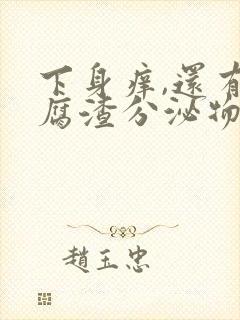 下身痒,還有
腐渣分泌物
趙玉忠